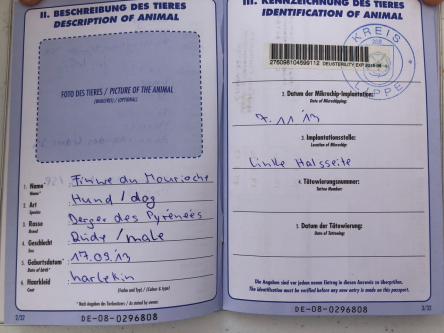 II. BESCHREIBUNG DES TIERES
DESCRIPTION OF ANIMAL
FOTO DES TIERES / PICTURE OF THE ANIMAL
(WAHLFREI) / (OPTIONAL)
1. Name*
Name*
2. Art
Species
Hund / dog
3. Rasse
Breed
Berger des Pyrénées
4. Geschlecht
Sex
Rüde / male
5. Geburtsdatum*
Date of birth*
17.09.13
6. Haarkleid
Coat
harlekin
(Farbe und Typ) / (Colour & type)
* Nach Angaben des Tierbesitzers / As stated by owner
2/32
DE-08-0296808
III. KENNZEICHNUNG DES TIERES
IDENTIFICATION OF ANIMAL
KREIS
LIPPE
276098104599112
2. Datum der Mikrochip-Implantation:
Date of Microchipping:
7.11.13
3. Implantationsstelle:
Location of Microchip:
Linke Halsseite
4. Tätowierungsnummer:
Tattoo Number:
5. Datum der Tätowierung:
Date of Tattooing:
Die Angaben sind vor jedem neuen Eintrag in diesen Ausweis zu überprüfen.
The identification must be verified before any new entry is made on this passport.
DE-08-0296808
3/32